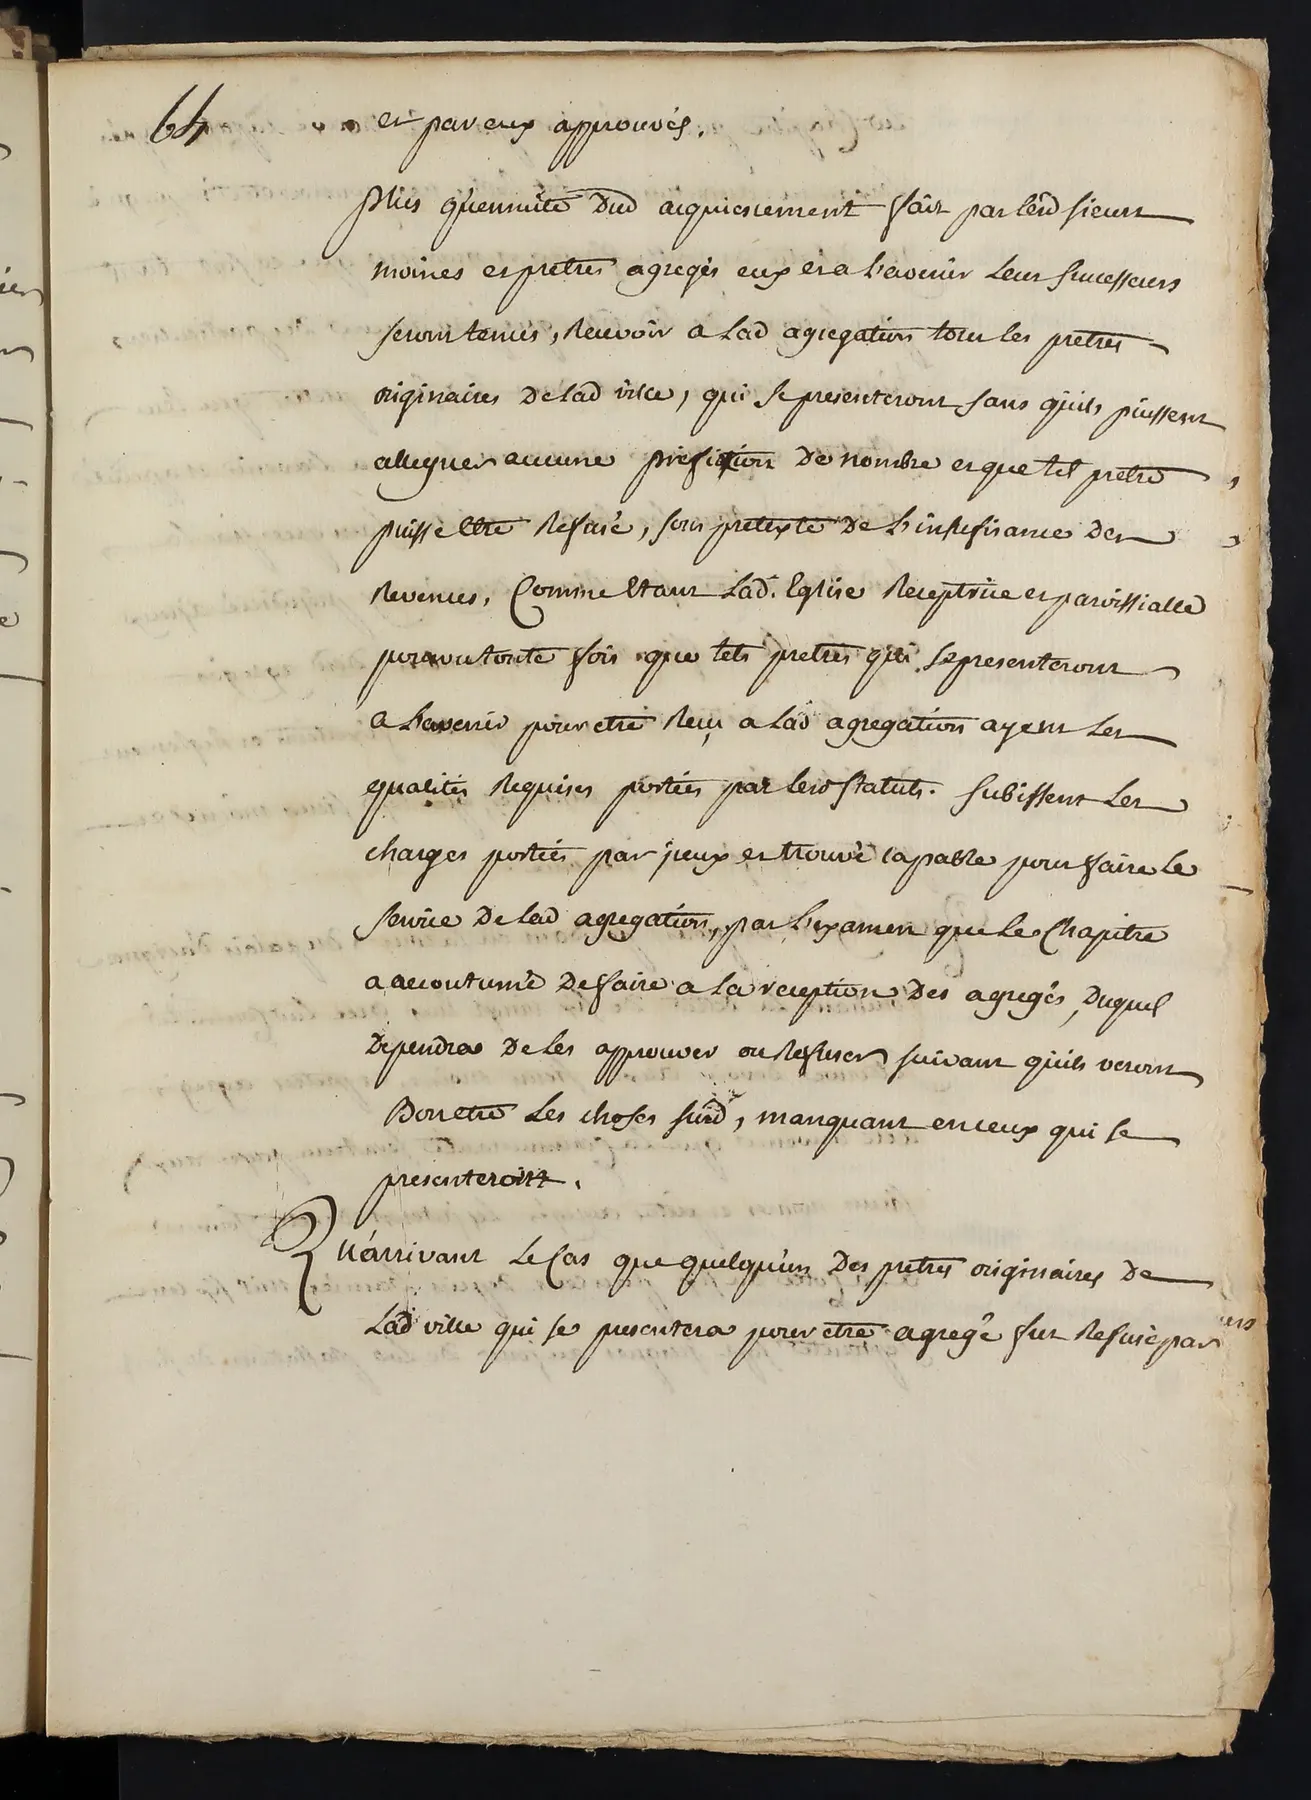 64
et par eux approuvés.
Plus qu'ensuitte Dud acquiescement fait par lesd sieurs
moines et pretres agregés eux et a l'avenir leur successeurs
seront tenus, Recevoir a Lad agregation tous les pretres
originaires De lad ville, qui se presenteront sans quils puissent
alleguer aucune prefixtion De nombre et que tel pretre
puisse Etre Refusé, sous pretexte De l'insufisance Des
Revenus, Comme Etant Lad. Eglise Receptrice et paroissialle
pourvu toute fois que tels pretres qui se presenteront
a l'avenir pour etre Reçu a Lad agregation ayent Les
qualités Requises portées par lesd Statuts. Subissent Les
charges portées par jceux et trouvé capable pour faire Le
service De lad agregation, par l'examen que Le Chapitre
a accoutumé De faire a La reception Des agregés, Duquel
Dependra De Les approuver ou Refuser suivant quils veront
Bon etre Les choses susd, manquant en ceux qui se
presenteront.
Qu'arrivant Le Cas que quelqu'un Des pretres originaires De
Lad ville qui se presentera pour etre agregé fut Refusé par